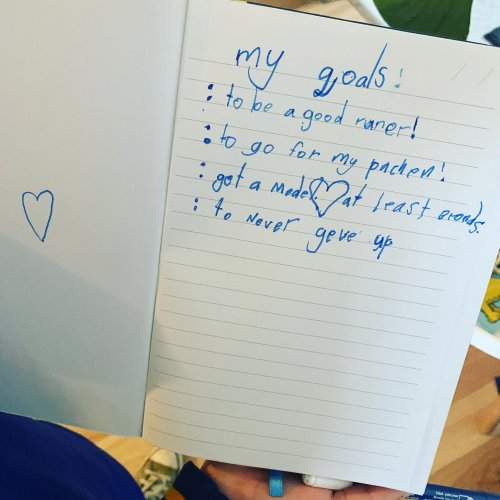 my goals:
: to be a good runer!
: to go for my pachen!
: get a medel at least bronds.
: to never geve up